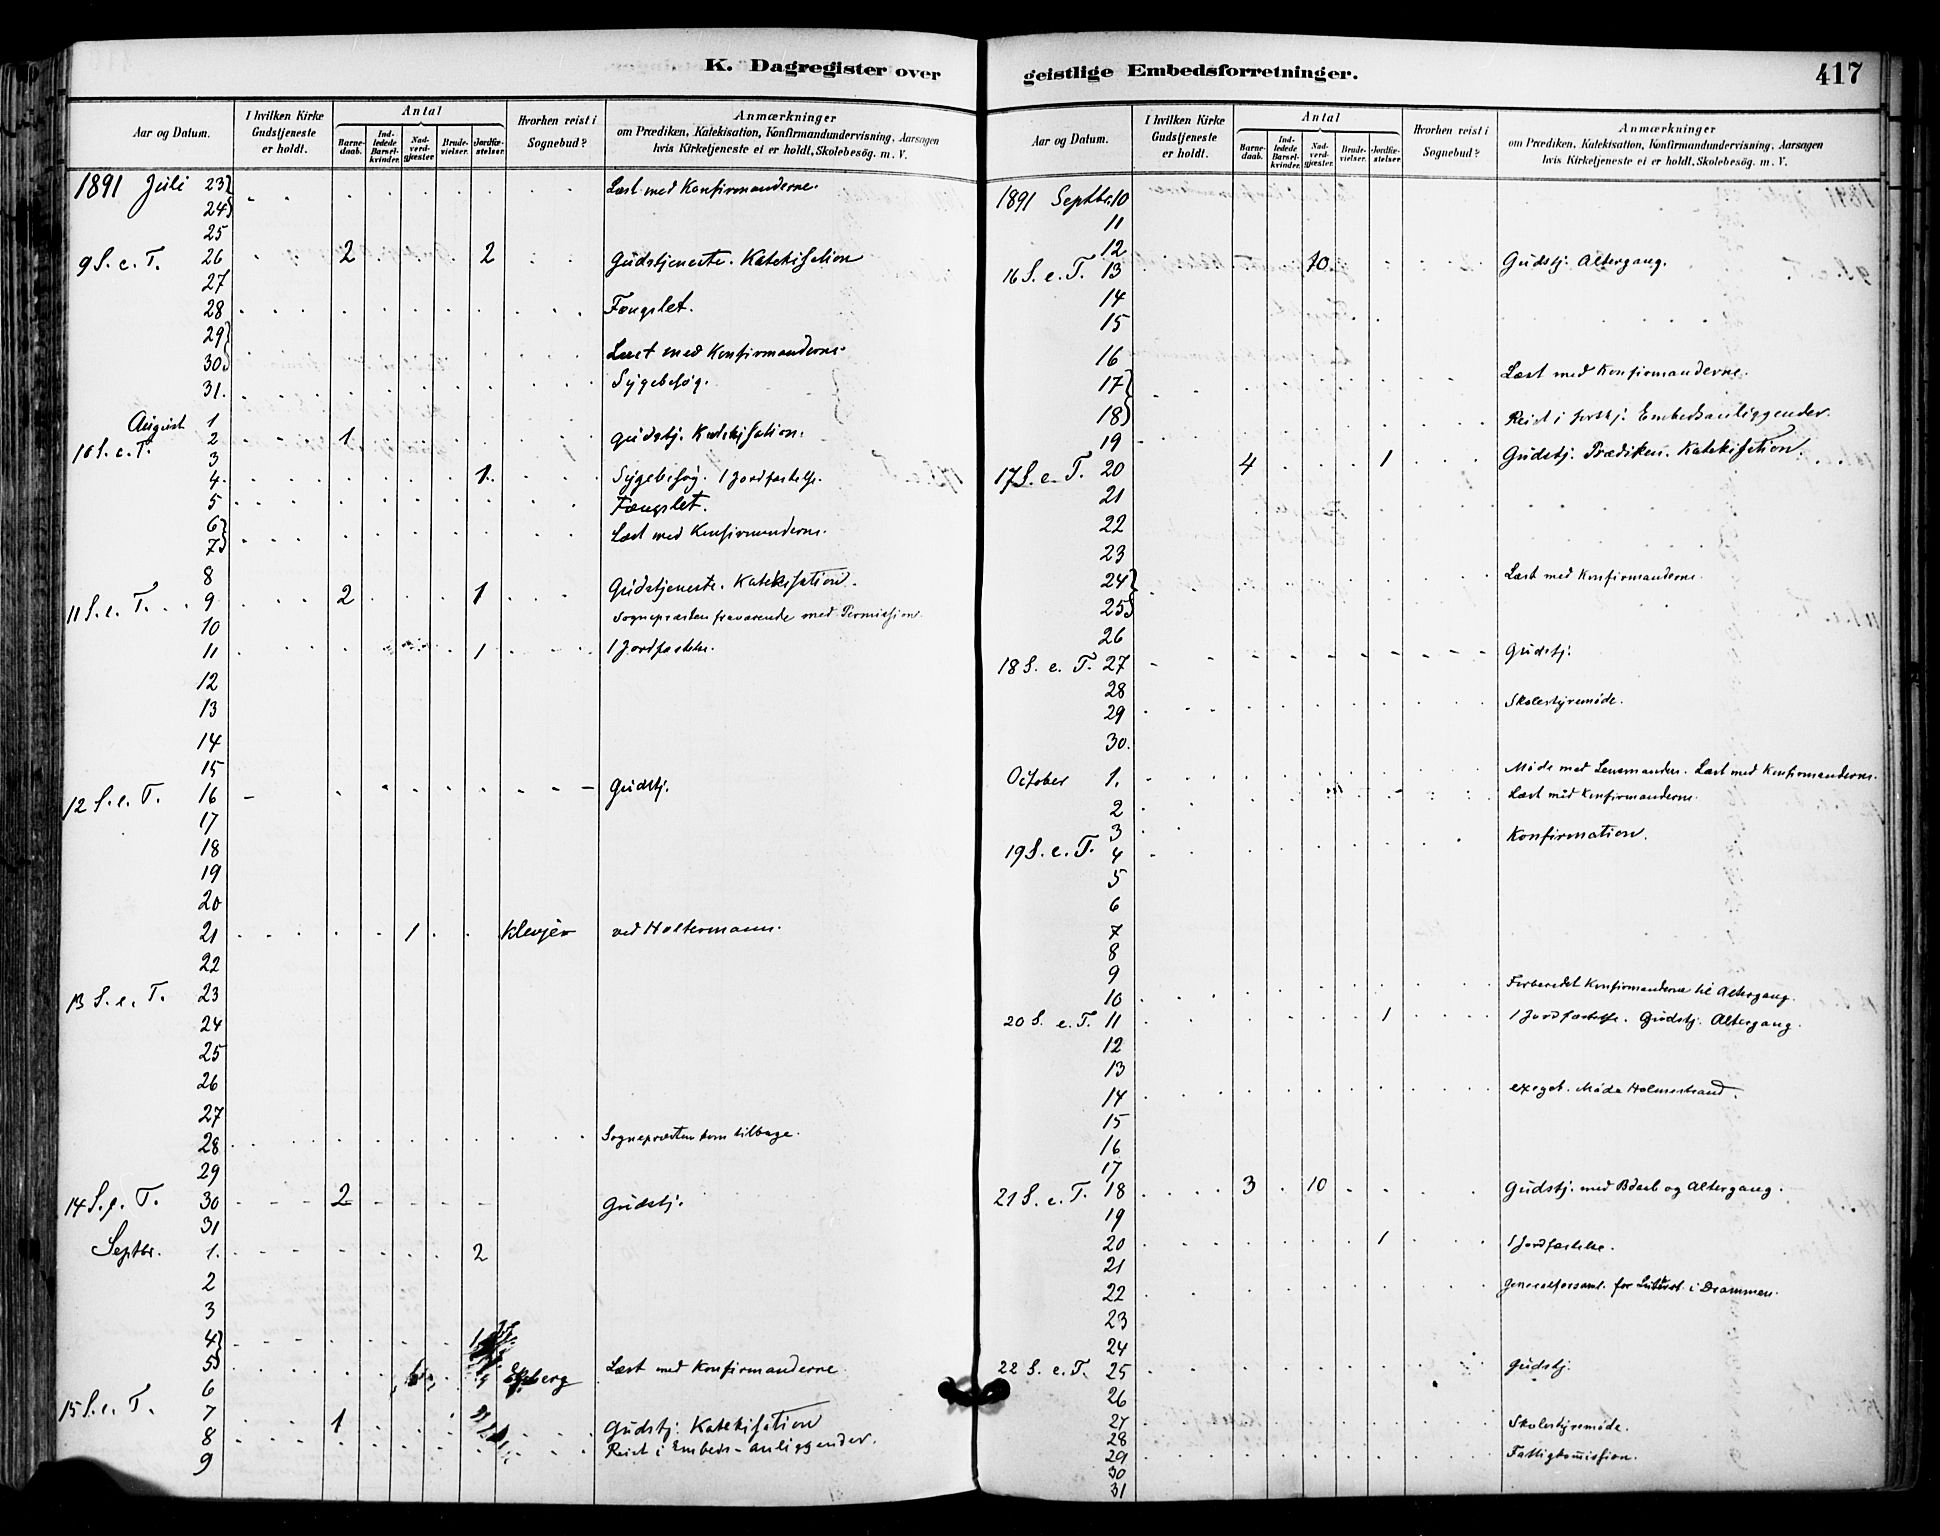 K. Dagregister over geistlige Embedsforretninger.
417
Aar og Datum.
I hvilken Kirke Gudstjeneste er holdt.
Antal
Barne-daab.
Ind-ledede Barsel-kvinder.
Nad-verd-gjæster
Brude-vielser.
Jordfæ-stelser.
Hvorhen reist i Sognebud?
Anmærkninger
om Prædiken, Katekisation, Konfirmandundervisning, Aarsagen
hvis Kirketjeneste ei er holdt, Skolebesög. m. V.
1891 Juli 23 Læst med Konfirmanderne.
24
25
9 S. e. T. 26 2 2 Gudstjeneste. Katekisation
27
28 Fængslet.
29
30 Læst med Konfirmanderne.
31. Sygebesøg.
August 1
10 S. e. T. 2 1 Gudstj. Katekisation.
3
4. 1. Sygebesøg. 1 Jordfæstelse.
5 Fængslet.
6
7 Læst med Konfirmanderne.
8
11 S. e. T. 9 2 1 Gudstjeneste. Katekisation.
10 Sognepræsten fraværende med Permission.
11 1 1 Jordfæstelse.
12
13
14
15
12 S. e. T. 16 Gudstj.
17
18
19
20
21 1 Klevjer ved Holtermann.
22
13 S. e. T. 23
24
25
26
27
28 Sognepræsten kom tilbage.
29
14 S. e. T. 30 2 Gudstj.
31
Septbr. 1. 2
2
3
4
5 Læst med Konfirmanderne
6
15 S. e. T. 7 1 Gudstj. Katekisation
8 Reist i Embeds-anliggender.
9
Aar og Datum.
I hvilken Kirke Gudstjeneste er holdt.
Antal
Barne-daab.
Ind-ledede Barsel-kvinder.
Nad-verd-gjæster
Brude-vielser.
Jordfæ-stelser.
Hvorhen reist i Sognebud?
Anmærkninger
om Prædiken, Katekisation, Konfirmandundervisning, Aarsagen
hvis Kirketjeneste ei er holdt, Skolebesög. m. V.
1891 Septbr. 10
11
12
16 S. e. T. 13 10. Gudstj. Altergang.
14
15
16
17 Læst med Konfirmanderne.
18 Reist i forskj. Embedsanliggender.
19
17 S. e. T. 20 4 1 Gudstj. Prædiken. Katekisation.
21
22
23
24 Læst med Konfirmanderne.
25
26
18 S. e. T. 27 Gudstj.
28
29 Skolestyremøde.
30.
October 1. Møde med Lensmanden. Læst med Konfirmanderne.
2 Læst med Konfirmanderne.
3
19 S. e. T. 4 Konfirmation.
5
6
7
8
9
10 Forberedet Konfirmanderne til Altergang.
20 S. e. T. 11 1 1 Jordfæstelse. Gudstj. Altergang.
12
13
14 exeget. Møde Holmestrand.
15
16
17
21 S. e. T. 18 3 10 Gudstj. med Bdaab og Altergang.
19
20 1 1 Jordfæstelse.
21
22 Generalforsaml. for i Drammen.
23
24
22 S. e. T. 25 Gudstj.
26
27 Skolestyremøde.
28
29 Fattigkomission.
30
31